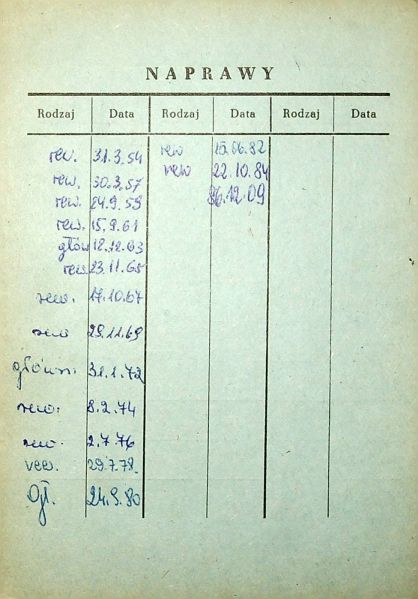 NAPRAWY
Rodzaj Data Rodzaj Data Rodzaj Data
rew. 31.3.54 rew 15.06.82
rew. 30.3.57 rew 22.10.84
rew. 24.9.59 86.12.09
rew. 15.9.61
głów 12.12.63
rew. 23.11.65
rew. 17.10.67
rew 29.11.69
główn. 31.1.72
rew. 8.2.74
rew. 2.7.76
rew. 29.7.78.
24.9.80